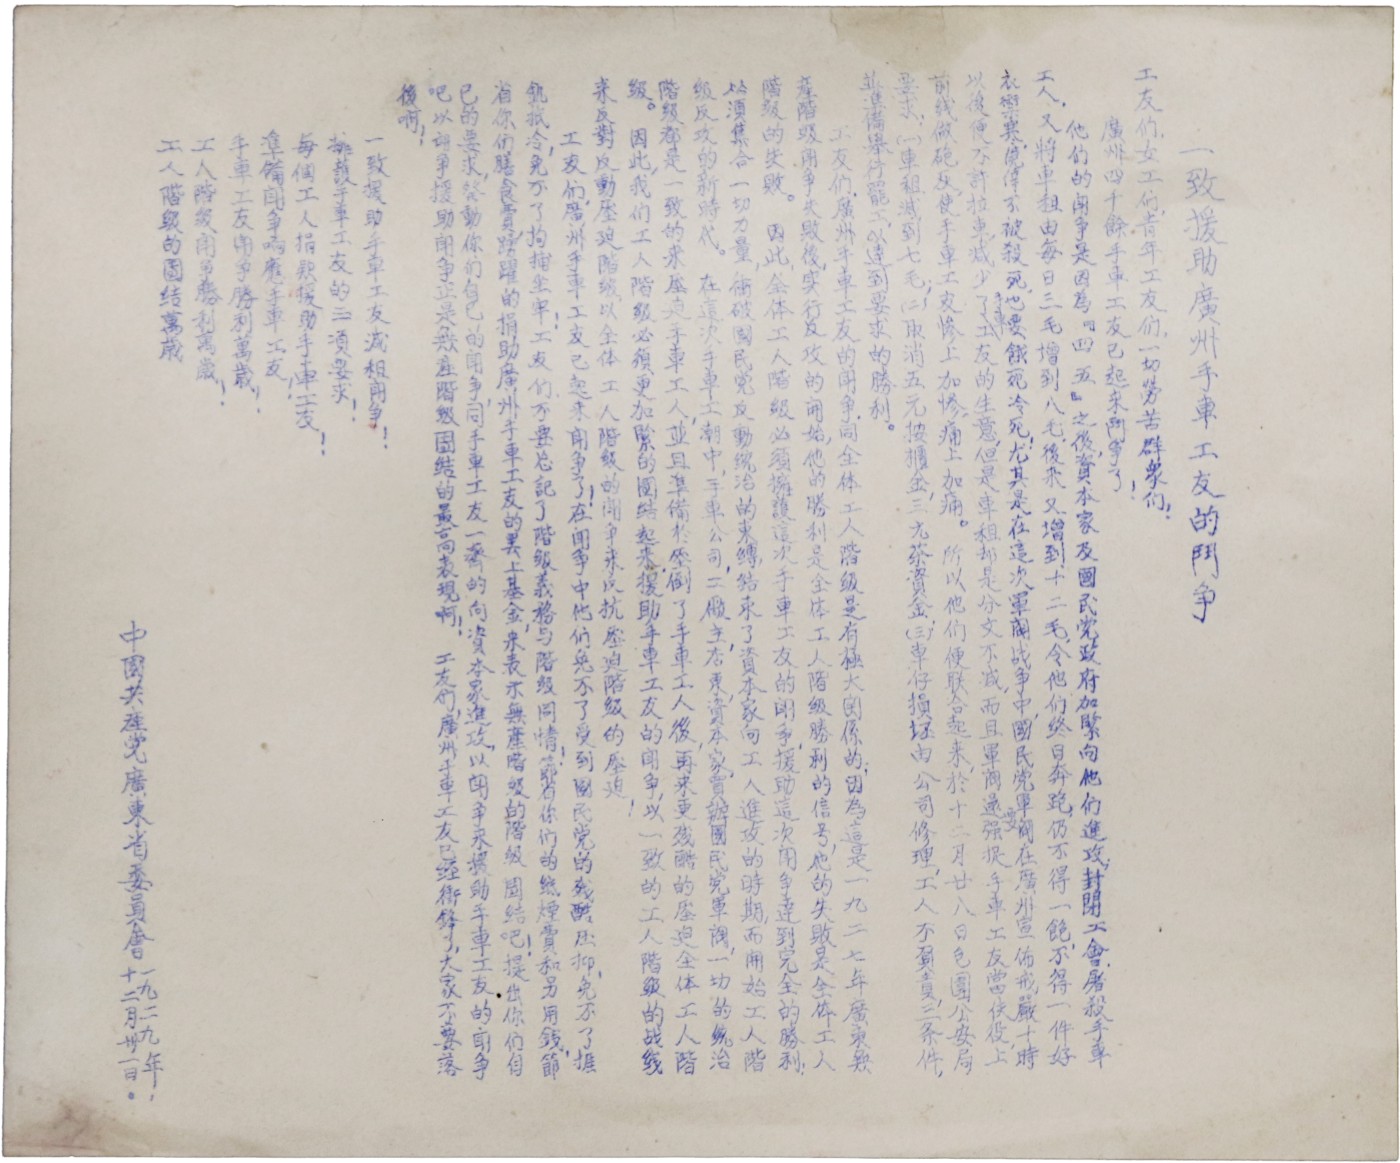 一致援助廣州手車工友的鬥爭
工友們，女工們，青年工友們，一切勞苦群衆們！
廣州四千餘手車工友已起來鬥爭了！
他們的鬥爭是因為『四一五』之後，資本家及國民党政府加緊向他們進攻，封閉工會，屠殺手車
工人，又將車租由每日三毛增到八毛，後來又增到十二毛，令他們終日奔跑，仍不得一飽，不得一件好
衣禦寒，僥倖不被殺死，也要餓死冷死，尤其是在這次軍閥战争中，國民党軍閥在廣州宣佈戒嚴，十時
以後便不許拉車，减少了手車工友的生意，但是車租却是分文不减，而且軍閥還要强捉手車工友當伕役，上
前线做砲灰，使手車工友惨上加惨，痛上加痛。 所以他們便联合起來，於十二月廿八日包圍公安局
要求，（一）車租减到七毛，（二）取消五元按櫃金，三元茶資金，（三）車仔損坏由公司修理，工人不負責，三条件，
並準備舉行罷工，以達到要求的勝利。
工友們，廣州手車工友的鬥爭，同全体工人階級是有極大關係的，因為這是一九二七年廣東無
産階級鬥争失败後，实行反攻的開始，他的勝利是全体工人階級勝利的信号，他的失敗是全体工人
階級的失败。 因此，全体工人階級必須擁護這次手車工友的鬥争，援助這次鬥争達到完全的勝利，
必須集合一切力量，衝破國民党反動統治的束縛，結束了資本家向工人進攻的時期，而開始工人階
級反攻的新時代。 在這次手車工潮中，手車公司，工廠主，店東，資本家，買辦，國民党軍閥，一切的統治
階級都是一致的來壓迫手車工人，並且準備於壓倒了手車工人後，再來更残酷的壓迫全体工人階
級。 因此，我們工人階級必須更加緊的團結起來，援助手車工友的鬥争，以一致的工人階級的战线
來反對反動壓迫階級，以全体工人階級的鬥争來反抗壓迫階級的壓迫！
工友們，廣州手車工友已起來鬥爭了！在鬥争中他們免不了受到國民党的残酷压抑，免不了捱
飢抵冷，免不了拘捕坐牢！工友們，不要忘記了階級義務与階級同情！節省你們的紙煙費和另用錢，節
省你們膳食費，踴躍的捐助廣州手車工友的罢工基金，來表示無産階級的階級團結吧！提出你們自
己的要求，發動你們自已的鬥争，同手車工友一齊的向資本家進攻，以鬥争來援助手車工友的鬥争
吧！以鬥争援助鬥争正是無産階級團結的最高表現啊！ 工友們，廣州手車工友已經衝鋒了，大家不要落
後啊！
一致援助手車工友减租鬥爭！
擁護手車工友的三項要求！
每個工人捐款援助手車工友！
準備鬥争响應手車工友！
手車工友鬥爭勝利萬歲！
工人階級鬥爭勝利萬歲！
工人階級的團結萬歲
中國共産党廣東省委員會 一九二九年，十二月卅一日。